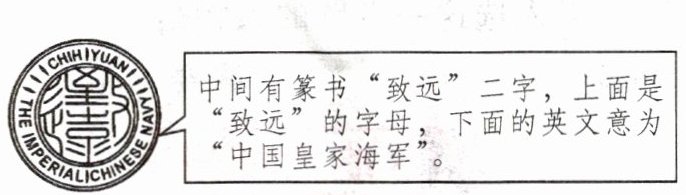 CHIH YUAN
THE IMPERIAL CHINESE NAVY
致远
中间有篆书“致远”二字，上面是
“致远”的字母，下面的英文意为
“中国皇家海军”。